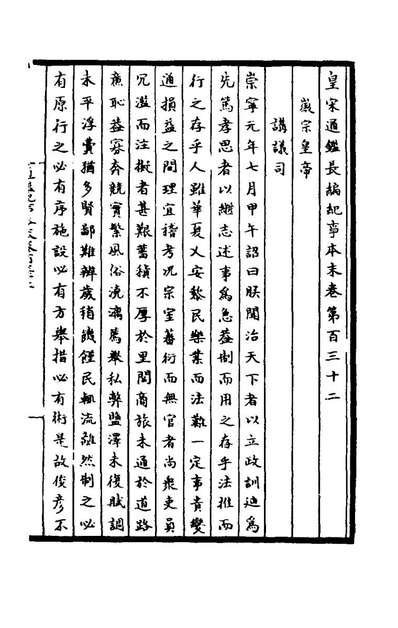 皇宋通鑑長編紀事本末卷第百三十二
徽宗皇帝
講議司
崇寧元年七月甲午詔曰朕聞治天下者以立政訓迪為
先篤孝思者以繼志述事為急蓋制而用之存乎法推而
行之存乎人雖華夏乂安黎民樂業而法難一定事貴變
通損益之間理宜稽考况宗室蕃衍而無官者尚衆吏員
冗濫而注擬者甚艱蓄積不厚於里閭商旅未通於道路
廉恥蓋寡奔競實繁風俗澆漓薦舉私弊鹽澤未復賦調
未平浮費猶多賢鄙難辨歲稍饑饉民輒流離然制之必
有原行之必有序施設必有方舉措必有術是故俊彦不